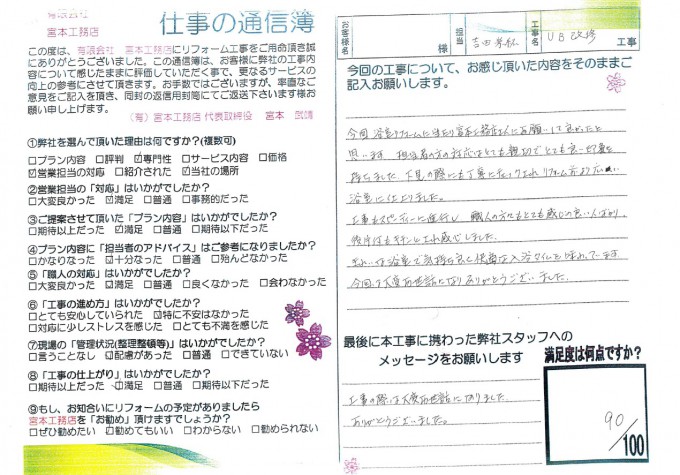 有限会社
宮本工務店
仕事の通信簿
この度は、有限会社 宮本工務店にリフォーム工事をご用命頂き誠
にありがとうございました。この通信簿は、お客様に弊社の工事内
容について感じたままに評価していただく事で、更なるサービスの
向上の参考にさせて頂きます。お手数ではございますが、率直なご
意見をご記入を頂き、同封の返信用封筒にてご返送下さいます様お
願い申し上げます。
(有)宮本工務店 代表取締役 宮本
①弊社を選んで頂いた理由は何ですか?(複数可)
□プラン内容 □評判 ☑専門性 □サービス内容 □価格
☑営業担当の対応 □紹介された ☑当社の場所
②営業担当の「対応」はいかがでしたか?
□大変良かった ☑満足 □普通 □事務的だった
③ご提案させて頂いた「プラン内容」はいかがでしたか?
□期待以上だった ☑満足 □普通 □期待以下だった
④プラン内容に「担当者のアドバイス」はご参考になりましたか?
□かなりなった ☑十分なった □普通 □殆んどなかった
⑤「職人の対応」はいかがでしたか?
□大変良かった ☑満足 □普通 □良くなかった □会わなかった
⑥「工事の進め方」はいかがでしたか?
□とても安心していられた ☑特に不安はなかった
□対応に少しストレスを感じた □とても不満を感じた
⑦現場の「管理状況(整理整頓等)」はいかがでしたか?
□言うことなし ☑配慮があった □普通 □できていない
⑧「工事の仕上がり」はいかがでしたか?
□期待以上だった ☑満足 □普通 □期待以下だった
⑨もし、お知合いにリフォームの予定がありましたら
宮本工務店を「お勧め」頂けますでしょうか?
□ぜひ勧めたい ☑勧めてもいい □わからない □勧められない
お客様名 様 担当 吉田 工事名 UB改修 工事
今回の工事について、お感じ頂いた内容をそのままご
記入お願いします。
今回浴室リフォームに当たり宮本工務店さんにお願いして良かったと
思います 担当者の方の対応はとても親切でとても良い印象を
持ちました 下見の際にも丁寧にチェックされリフォーム前より広い
浴室に仕上りました。
工事もスピーディーに進行し 職人の方々もとても感じの良い人ばかり
後片付もキチンとされ感心しました。
きれいな浴室で気持ち良く快適な入浴タイムを
今回は大変お世話になりありがとうございました。
最後に本工事に携わった弊社スタッフへの
メッセージをお願いします
工事の際は大変お世話になりました
ありがとうございました。
満足度は何点ですか?
90
/100